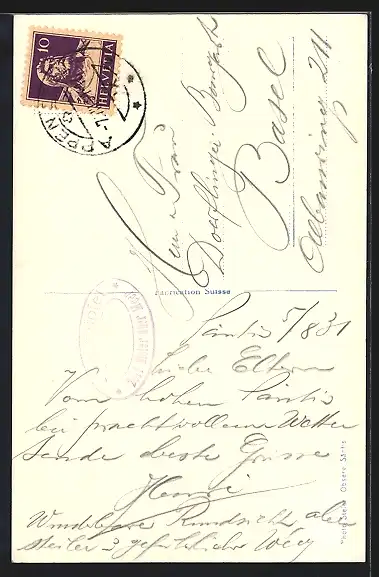 10
HELVETIA
APPENZ
Herr u Frau
Doerflinger-Bengert
Basel
Fabrication Suisse
Säntis 5/8 31
Liebe Eltern
Vom hohen Säntis
bei prachtvollem Wetter
sende beste Grüsse
Henri
Rundsicht aber
steiler & gefährlicher Weg
Observ. Säntis